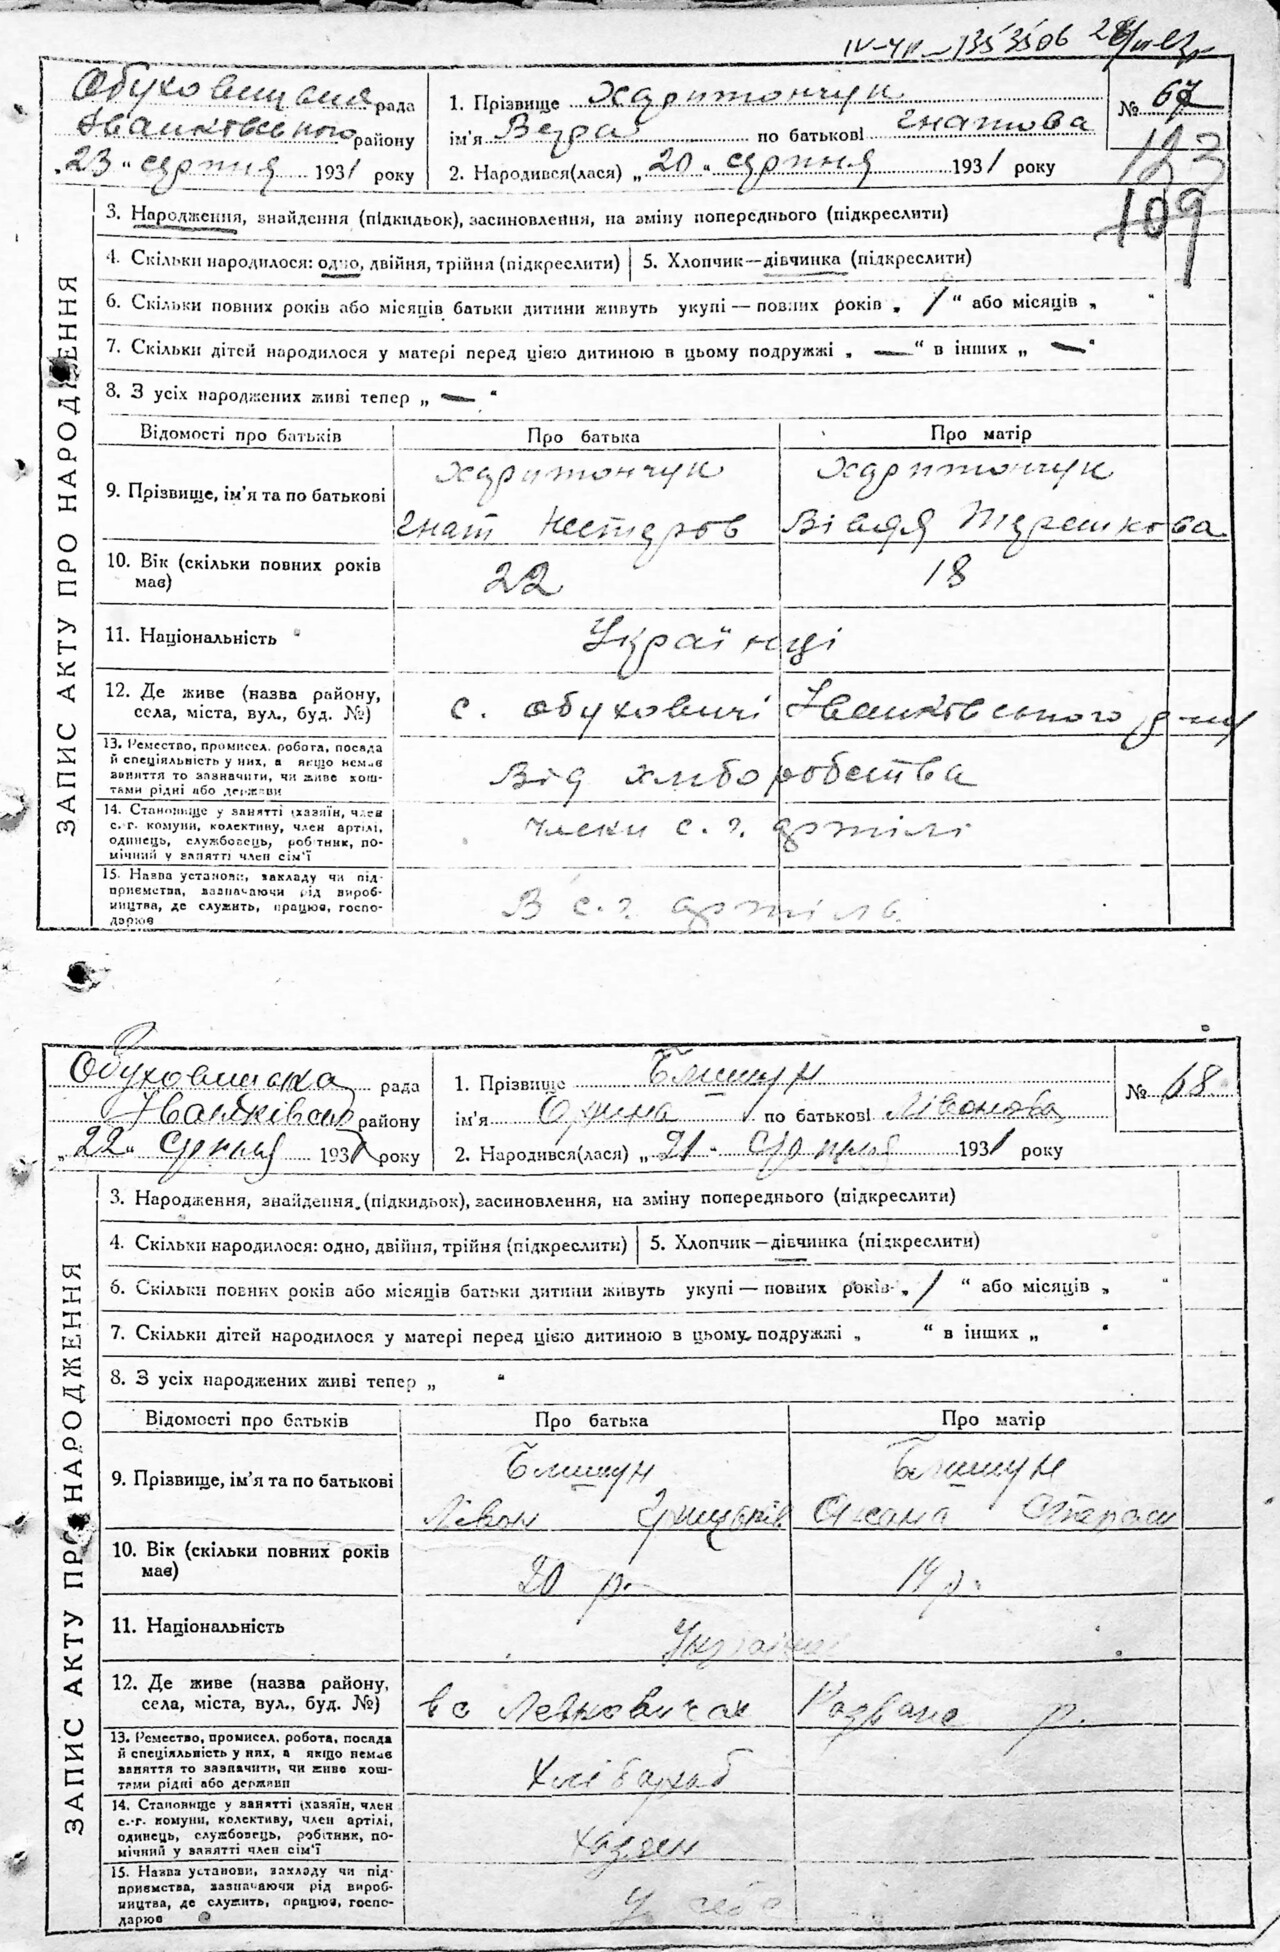 IV-ЧП-1353506
Обуховицька рада
Іванківського району
„23“ серпня 1931 року
1. Прізвище Харитончук
ім'я Вера по батькові Гнатова
2. Народився(лася) „20“ серпня 1931 року
№ 67
123
109
ЗАПИС АКТУ ПРО НАРОДЖЕННЯ
3. Народження, знайдення (підкидьок), засиновлення, на зміну попереднього (підкреслити)
4. Скільки народилося: одно, двійня, трійня (підкреслити) 5. Хлопчик—дівчинка (підкреслити)
6. Скільки повних років або місяців батьки дитини живуть укупі — повних років „ 1 “ або місяців „ “
7. Скільки дітей народилося у матері перед цією дитиною в цьому подружжі „ — “ в інших „ — “
8. З усіх народжених живі тепер „ — “
Відомості про батьків Про батька Про матір
9. Прізвище, ім'я та по батькові
Харитончук Харитончук
Гнат Нестеров Терешкова
10. Вік (скільки повних років має) 22 18
11. Національність Українці
12. Де живе (назва району, села, міста, вул., буд. №) с. Обуховичі Іванківського р-ну
13. Ремество, промисел. робота, посада й спеціяльність у них, а якщо немає заняття то зазначити, чи живе коштами рідні або держави
Від хліборобства
14. Становище у занятті (хазяїн, член с.-г. комуни, колективу, член артілі, одинець, службовець, робітник, помічний у занятті член сім'ї
члени с. г. артілі
15. Назва установи, закладу чи підприємства, зазначаючи рід виробництва, де служить, працює, господарює
В с. г. артіль
Обуховицька рада
Іванківськ району
„22“ серпня 1931 року
1. Прізвище
ім'я по батькові Лівонова
2. Народився(лася) „21“ серпня 1931 року
№ 68
ЗАПИС АКТУ ПРО НАРОДЖЕННЯ
3. Народження, знайдення (підкидьок), засиновлення, на зміну попереднього (підкреслити)
4. Скільки народилося: одно, двійня, трійня (підкреслити) 5. Хлопчик—дівчинка (підкреслити)
6. Скільки повних років або місяців батьки дитини живуть укупі — повних років „ 1 “ або місяців „ “
7. Скільки дітей народилося у матері перед цією дитиною в цьому подружжі „ “ в інших „ “
8. З усіх народжених живі тепер „ “
Відомості про батьків Про батька Про матір
9. Прізвище, ім'я та по батькові
Лівон Грицьків Оксана
10. Вік (скільки повних років має) 20 р. 19 р.
11. Національність Українці
12. Де живе (назва району, села, міста, вул., буд. №) в с Левковичах р.
13. Ремество, промисел. робота, посада й спеціяльність у них, а якщо немає заняття то зазначити, чи живе коштами рідні або держави
Хлібороб
14. Становище у занятті (хазяїн, член с.-г. комуни, колективу, член артілі, одинець, службовець, робітник, помічний у занятті член сім'ї
хазяен
15. Назва установи, закладу чи підприємства, зазначаючи рід виробництва, де служить, працює, господарює
У себе